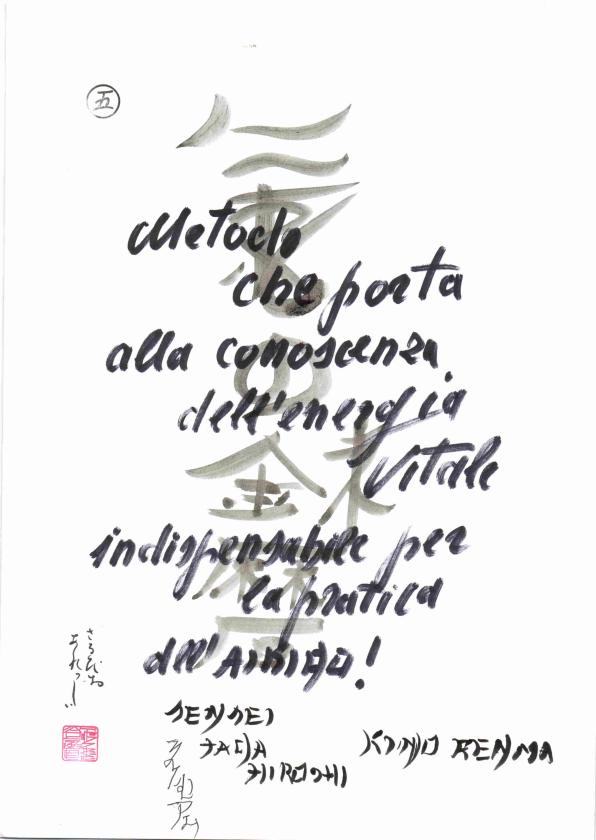 五
氣の錬磨
Metodo
che porta
alla conoscenza
dell'energia
vitale
indispensabile per
la pratica
dell'AIKIDO!
SENSEI
TADA
HIROSHI
KI NO RENMA